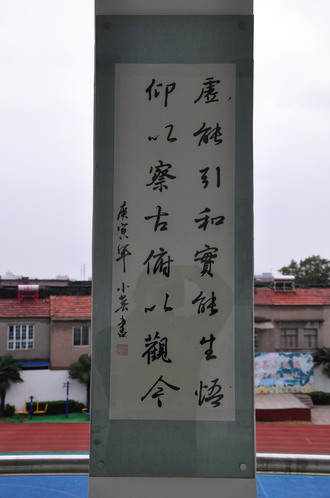 虚能引和實能生悟
仰以察古俯以觀今
庚寅年 小英書